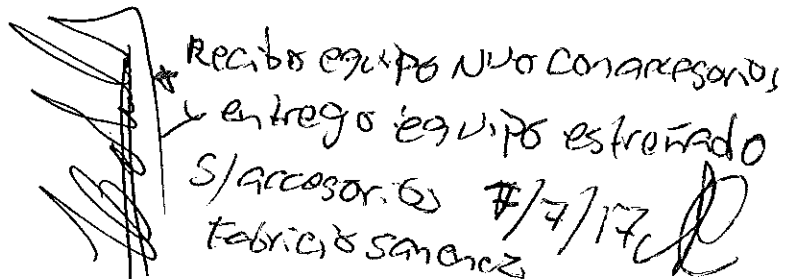 * Recibo equipo NUO con accesorios
y entrego equipo estrenado
S/accesorios 7/7/17
Fabricio Sanchez